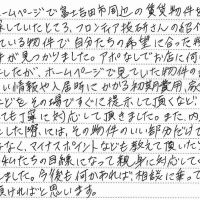 ホームページで富士吉田市周辺の賃貸物件を
探していたところ、フロンティア技研さんの紹介
ている物件で自分たちの希望に合った所
が見つかりました。アポなしでお店に伺い
したが、ホームページで見ていた物件の
い情報や入居時にかかる初期費用、家
などをその場ですぐに提示して頂くなど
ても丁寧に対応して頂きました。また、内
した際には、その物件のいい部分だけで
なく、マイナスポイントなども教えて頂いたり
私たちの目線になって親身に対応してく
ました。今後も何かあれば相談に乗って
頂ければと思います。